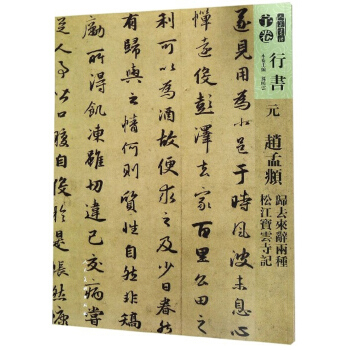 行書
元
趙孟頫
歸去來辭兩種
松江寶雲寺記
遂見用為小邑于時風波未息心
憚遠役彭澤去家百里公田之
利可以為酒故便求之及少日眷然
有歸與之情何則質性自然非矯
勵所得飢凍雖切違己交病嘗
從人事皆口腹自役於是悵然慷